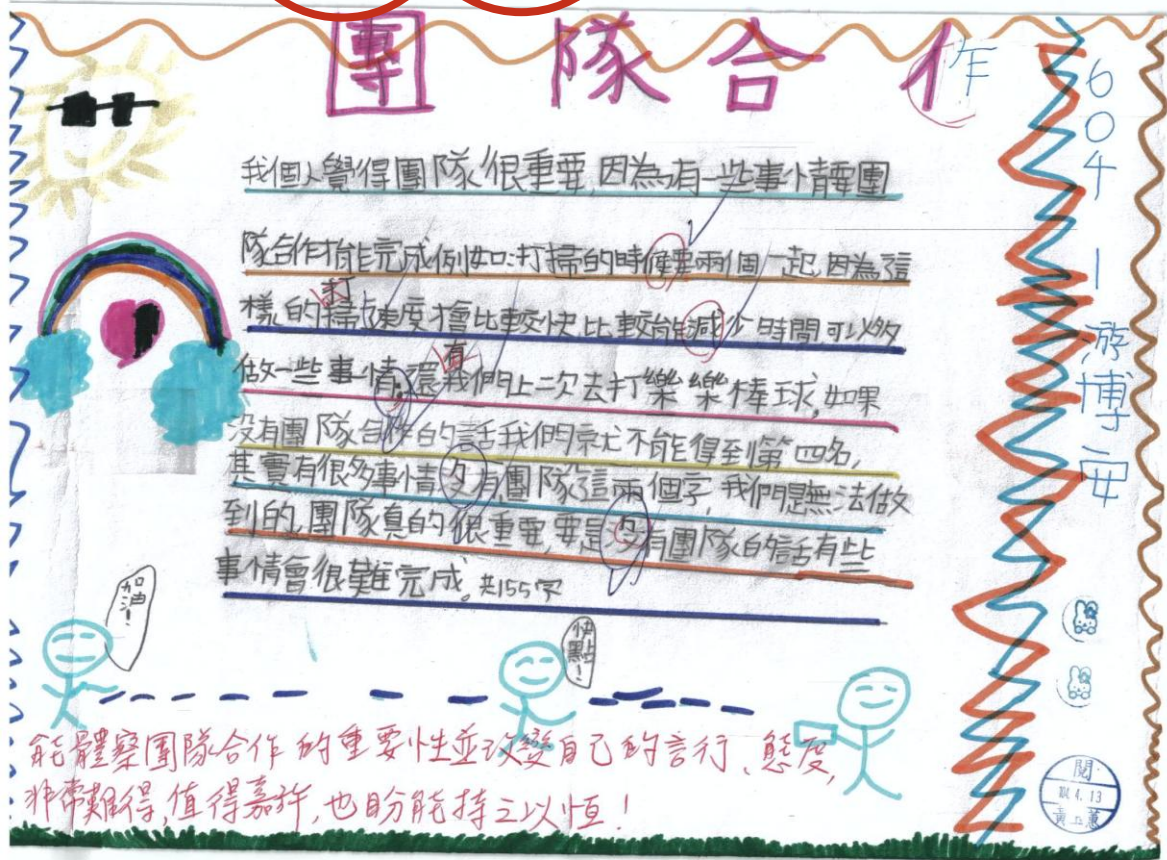 團隊合作
604-1 游博安
我個人覺得團隊很重要,因為有一些事情要團
隊合作才能完成例如:打掃的時候要兩個一起,因為這
樣的打掃速度才會比較快比較能減少時間可以多
做一些事情,還有我們上一次去打樂樂棒球,如果
沒有團隊合作的話我們就不能得到第四名,
其實有很多事情沒有團隊這兩個字,我們是無法做
到的,團隊真的很重要,要是沒有團隊的話有些
事情會很難完成。共155字
加油!
快點!
能體察團隊合作的重要性並改變自己的言行、態度,
非常難得,值得嘉許,也盼能持之以恆!
閱
4.13